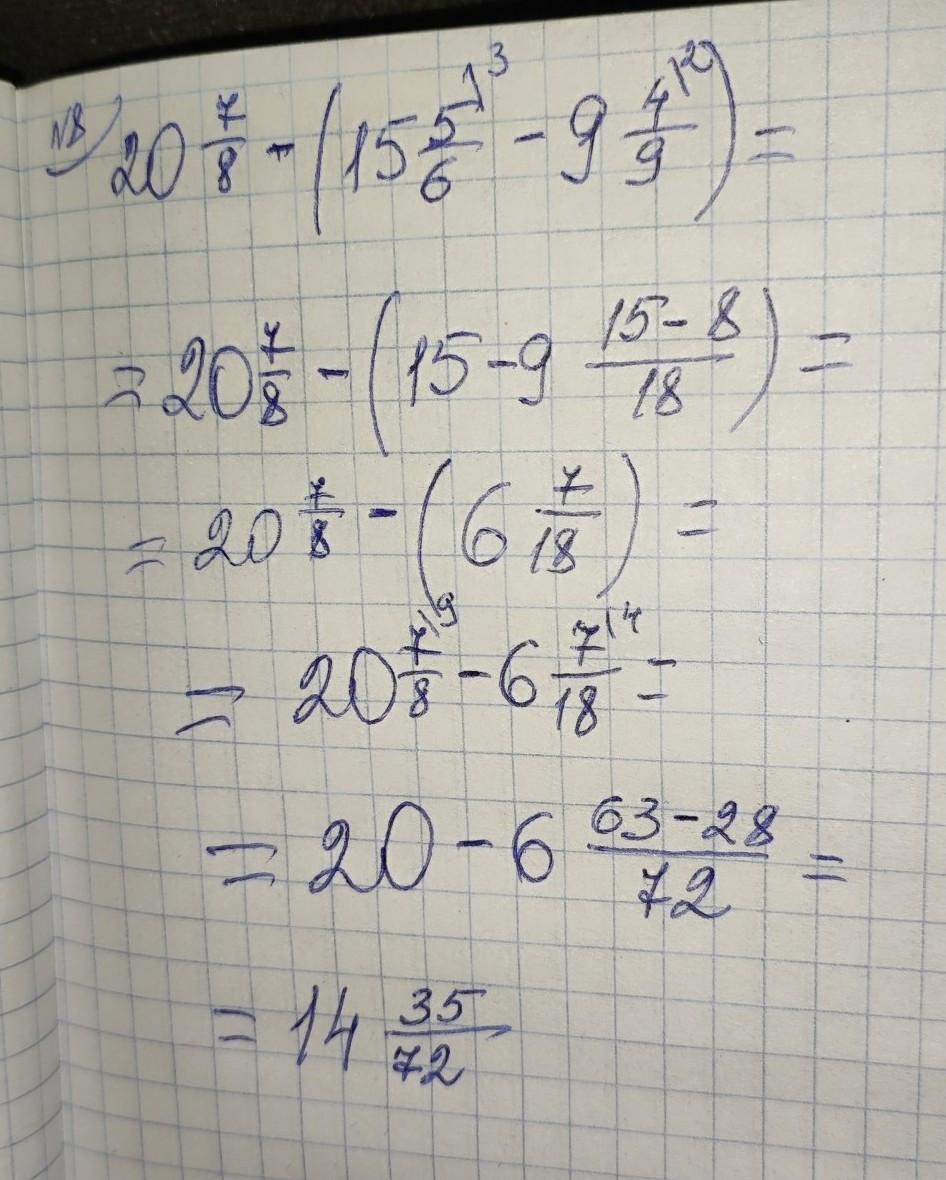 №8) 20 7/8 - (15 5/6 \3 - 9 4/9 \2) =
= 20 7/8 - (15 - 9 (15 - 8)/18) =
= 20 7/8 - (6 7/18) =
= 20 7/8 \9 - 6 7/18 \4 =
= 20 - 6 (63 - 28)/72 =
= 14 35/72